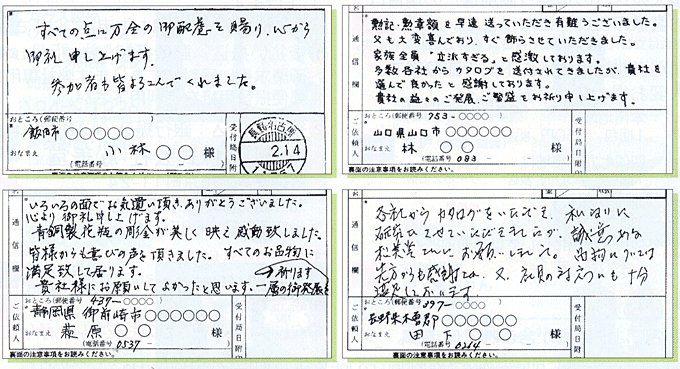 すべての点に万全の御配慮を賜り、心から
御礼申し上げます。
参加者も皆よろこんでくれました。
おところ(郵便番号
飯田市〇〇〇〇〇
おなまえ 小林〇〇様
(電話番号
裏面の注意事項をお読みください。
ご依頼人
受付局日附印
2.14
通信欄
勲記・勲章額を早速送っていただき有難うございました。
父も大変喜んでおり、すぐ飾らせていただきました。
家族全員“立派すぎる”と感激しております。
多数各社からカタログを送付されてきましたが、貴社を
選んで良かったと感謝しております。
貴社の益々のご発展、ご繁盛をお祈り申し上げます。
おところ(郵便番号 753-〇〇〇〇)
山口県山口市〇〇〇〇〇〇
おなまえ 林〇〇様
(電話番号 083 - -
裏面の注意事項をお読みください。
ご依頼人
受付局日附
通信欄
いろいろの面でお気遣い頂きありがとうございました。
心より御礼申し上げます。
青銅製花瓶の彫金が美しく映え感動致しました。
皆様からも喜びの声を頂きました。すべてのお品物に
満足致して居ります。
貴社様にお願いしてよかったと思います。一層の御発展を
お祈ります
おところ(郵便番号 437-〇〇〇〇
静岡県御前崎市〇〇〇〇〇〇
おなまえ 萩原〇〇様
(電話番号 0537
裏面の注意事項をお読みください。
ご依頼人
受付局日附
通信欄
各社からカタログをいただき、私なりに
研究させていただきましたが、誠意ある
お願いしました。
先方からも感謝され、又、社員の対応も十分
満足しております。
おところ(郵便番号 397-〇〇〇〇
長野県木曽郡〇〇〇〇〇
おなまえ 田下〇〇様
(電話番号 0264 - -
裏面の注意事項をお読みください。
ご依頼人
受付局日附